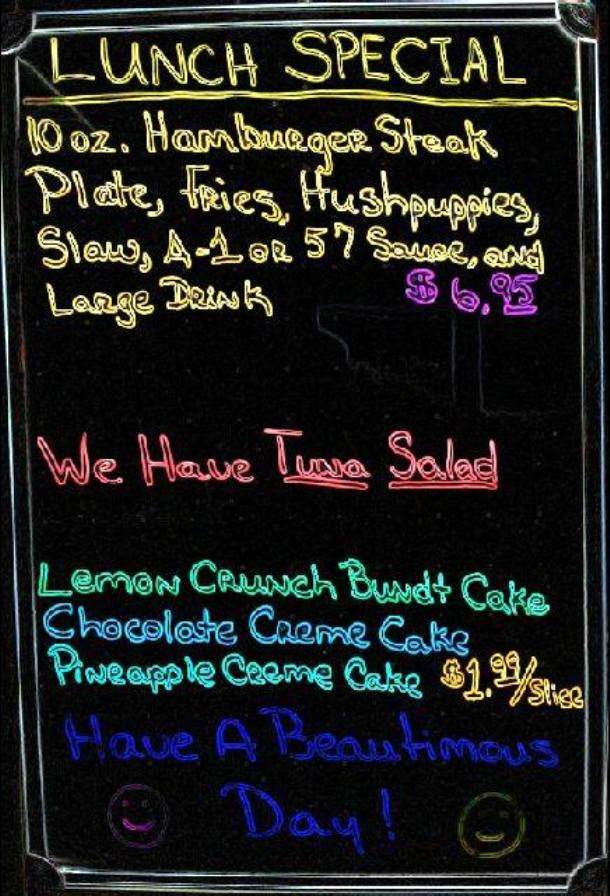 LUNCH SPECIAL
10 oz. Hamburger Steak
Plate, Fries, Hushpuppies,
Slaw, A-1 or 57 Sauce, and
Large Drink $6.95
We Have Tuna Salad
Lemon Crunch Bundt Cake
Chocolate Creme Cake
Pineapple Creme Cake $1.99/Slice
Have A Beautimous
Day!